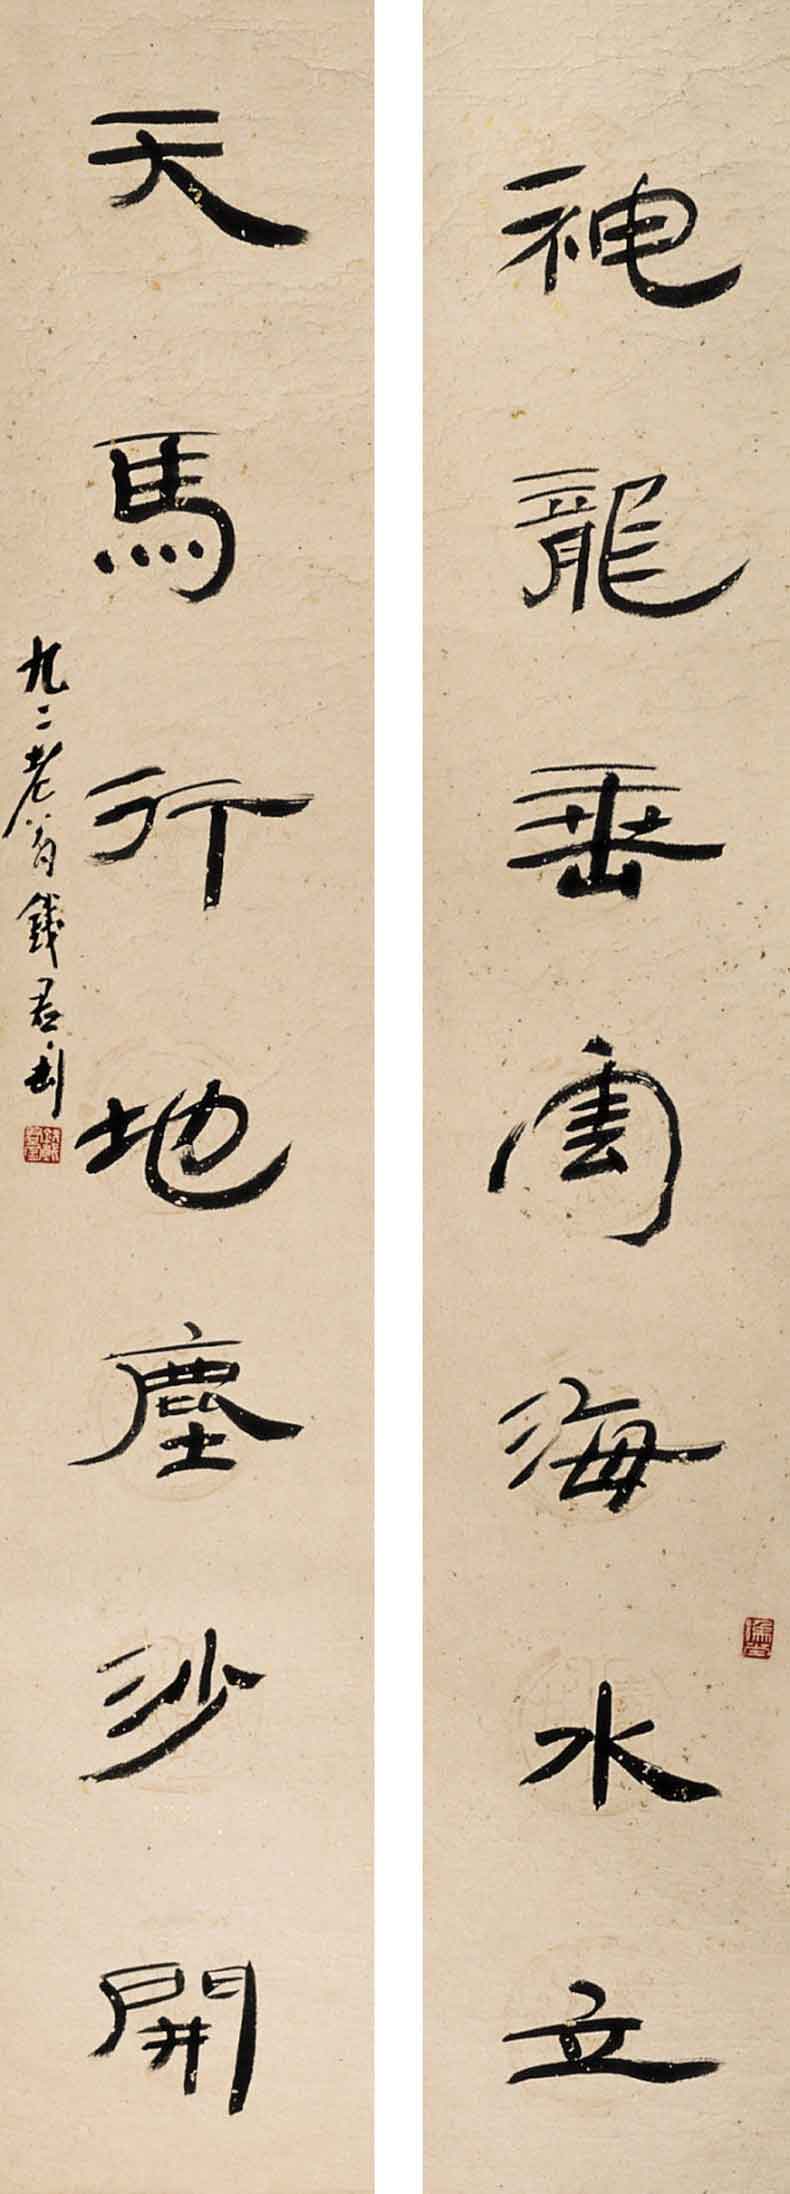 神龍垂雲海水立
天馬行地塵沙開
九二老翁錢君匋